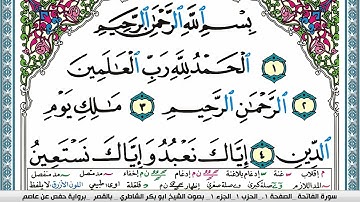 بِسْمِ ٱللَّهِ ٱلرَّحْمَٰنِ ٱلرَّحِيمِ
١ ٱلْحَمْدُ لِلَّهِ رَبِّ ٱلْعَالَمِينَ
٢ ٱلرَّحْمَٰنِ ٱلرَّحِيمِ ٣ مَالِكِ يَوْمِ
ٱلدِّينِ ٤ إِيَّاكَ نَعْبُدُ وَإِيَّاكَ نَسْتَعِينُ
سورة الفاتحة الصفحة ١. الحزب ١. الجزء ١. بصوت الشيخ ابو بكر الشاطري . بالقصر . برواية حفص عن عاصم